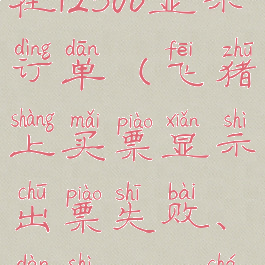 在12306显示
dìng dān fēi zhū
订单（飞猪
shàng mǎi piào xiǎn shì
上买票显示
chū piào shī bài
出票失败、
dàn shì